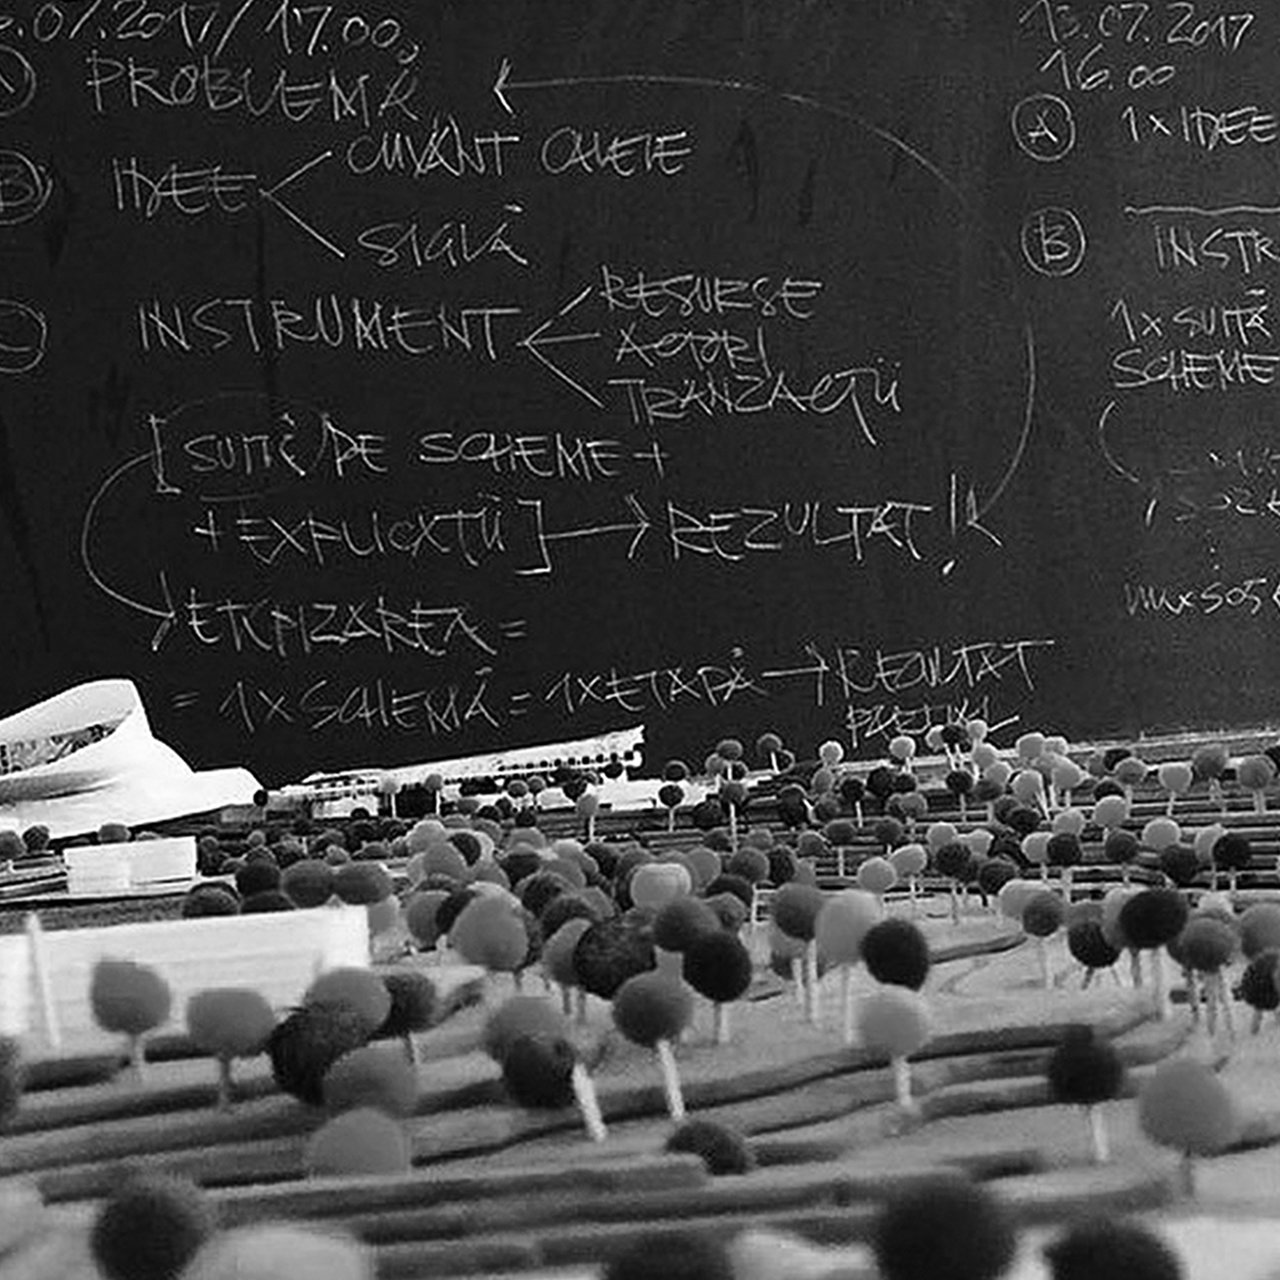 .07.2017/17.00
PROBLEMĂ
B IDEE
CUVÂNT CHEIE
SIGLĂ
C INSTRUMENT
RESURSE
ACTORI
TRANZACȚII
[SUITĂ DE SCHEME +
+ EXPLICAȚII] → REZULTAT!
ETAPIZAREA =
= 1 X SCHEMĂ = 1 X ETAPĂ → REZULTAT
PARȚIAL
13.07.2017
16.00
A 1 X IDEE
B INSTR
1 X SUITĂ
SCHEME